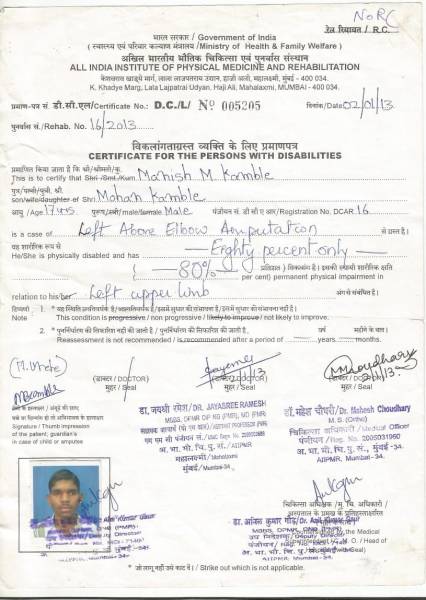 NoRC
रेल रियायत / R.C.
भारत सरकार / Government of India
( स्वास्थ्य एवं परिवार कल्याण मंत्रालय /Ministry of Health & Family Welfare )
अखिल भारतीय भौतिक चिकित्सा एवं पुनर्वास संस्थान
ALL INDIA INSTITUTE OF PHYSICAL MEDICINE AND REHABILITATION
केशवराव खाड्ये मार्ग, लाला लाजपतराय उद्यान, हाजी अली, महालक्ष्मी, मुंबई - 400 034.
K. Khadye Marg, Lala Lajpatrai Udyan, Haji Ali, Mahalaxmi, MUMBAI - 400 034.
प्रमाण-पत्र सं. डी.सी.एल/Certificate No.: D.C./L/ Nº 005205 दिनांक/Date 02/01/13
पुनर्वास सं./Rehab. No. 16/2013
विकलांगताग्रस्त व्यक्ति के लिए प्रमाणपत्र
CERTIFICATE FOR THE PERSONS WITH DISABILITIES
प्रमाणित किया जाता है कि श्री/श्रीमती/कु.
This is to certify that Shri /Smt./Kum. Manish M Kamble
पुत्र/पत्नी/पुत्री. श्री
son/wife/daughter of Shri Mohan Kamble
आयु /Age 17 yrs पुरुष/स्त्री/male/female Male पंजीयन सं. डी सी ए आर/Registration No. DCAR 16
is a case of Left Above Elbow Amputation से ग्रस्त है।
वह शारीरिक रूप से
He/She is physically disabled and has Eighty percent only
( 80% ) प्रतिशत ) विकलांग है। इसकी स्थायी शारीरिक क्षति
per cent) permanent physical impairment in
relation to his/her Left upper limb अंग से संबंधित है।
टिप्पणी : 1.
Note This condition is progressive / non progressive / likely to improve / not likely to improve.
2. * पुनर्निर्धारण की सिफारिश नहीं की जाती है / पुनर्निर्धारण की सिफारिश की जाती है, वर्ष महीने के बाद।
Reassessment is not recommended / is recommended after a period of years months.
(डाक्टर / DOCTOR) (डाक्टर / DOCTOR)
मुहर / SEAL मुहर / SEAL
Signature / Thumb impression
of the patient, guardian's
in case of child or amputee
डा. जयश्री रमेश/ DR. JAYASREE RAMESH
महालक्ष्मी/
मुंबई/Mumbai-34.
डॉ. महेश चौधरी/Dr. Mahesh Choudhary
M.S. (Ortho)
चिकित्सा अधिकारी /Medical Officer
पंजीयन / Reg. No. 2005031960
अ. भा. भौ. चि. पु. सं., मुंबई -34
AIIPMR, Mumbai-34.
चिकित्सा अधीक्षक / मु. चि. अधिकारी /
डा. अनिल कुमार गौड़/Dr. Anil Kumar Gaur
Deputy Director
AIIPMR, Mumbai-34
* जो लागू नहीं उसे काट दें। / Strike out which is not applicable.